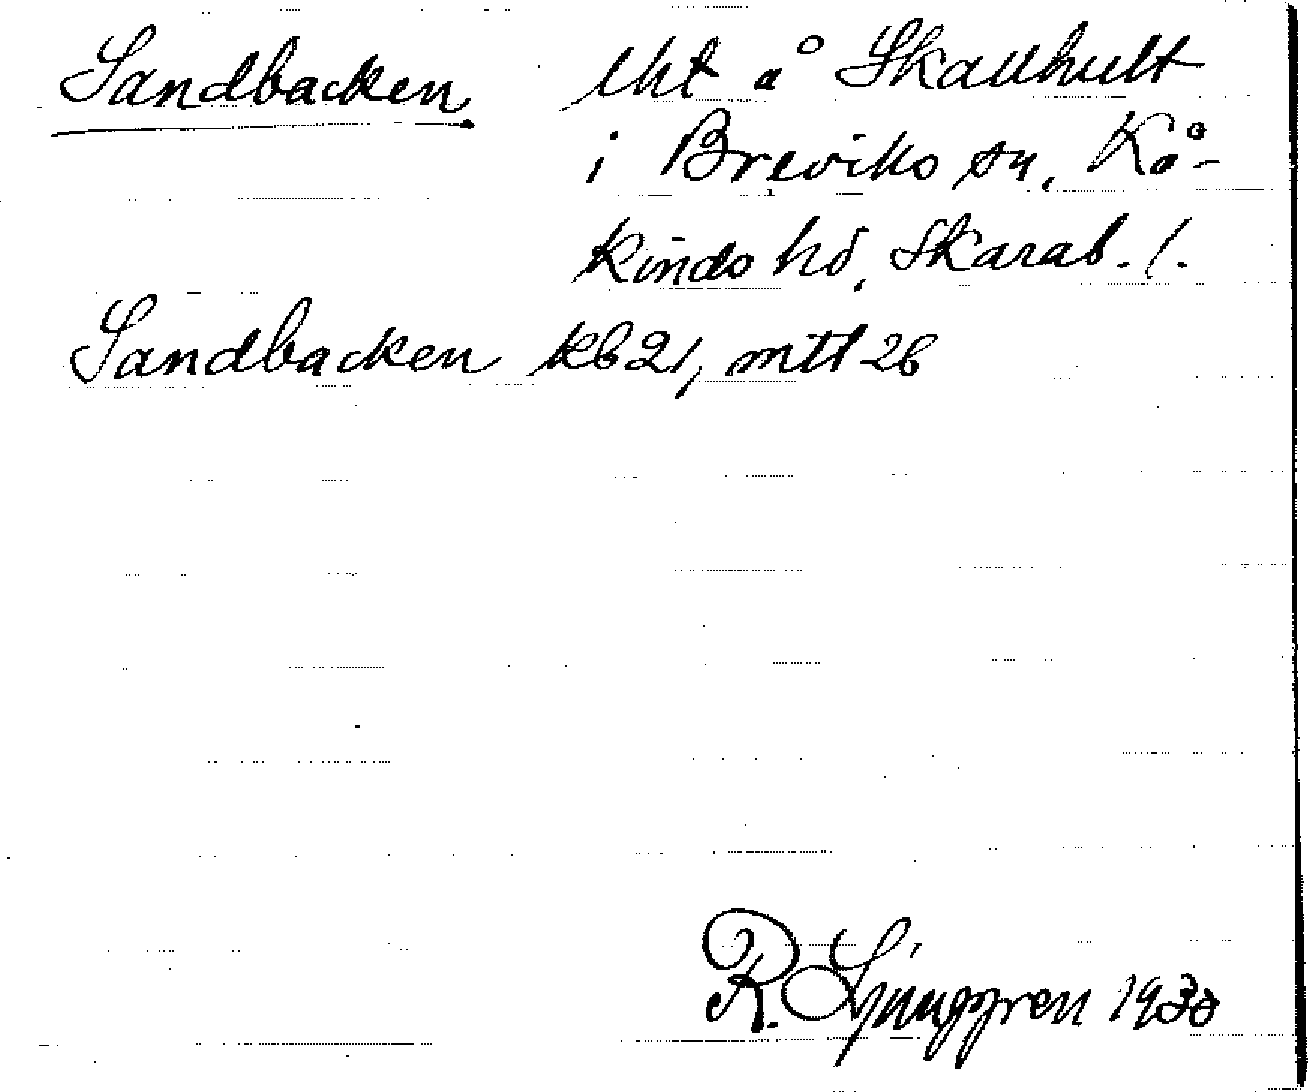 Sandbacken lht å Skallhult
i Breviks sn, Kå-
kinds hd, Skarab. l.
Sandbacken kb 21, mtl 26
R. Ljunggren 1930